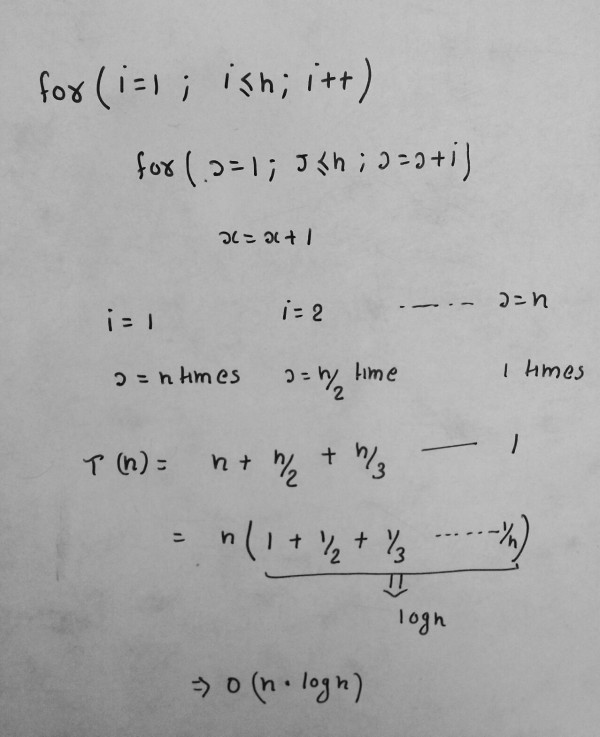 for ( i=1 ; i≤n; i++ )
for ( J=1; J≤n ; J=J+i )
x = x + 1
i = 1 i = 2 ------- J=n
J = n times J = n/2 time 1 times
T (n) = n + n/2 + n/3 —— 1
= n ( 1 + 1/2 + 1/3 ------- 1/n )
⇓
logn
⇒ O (n · logn)